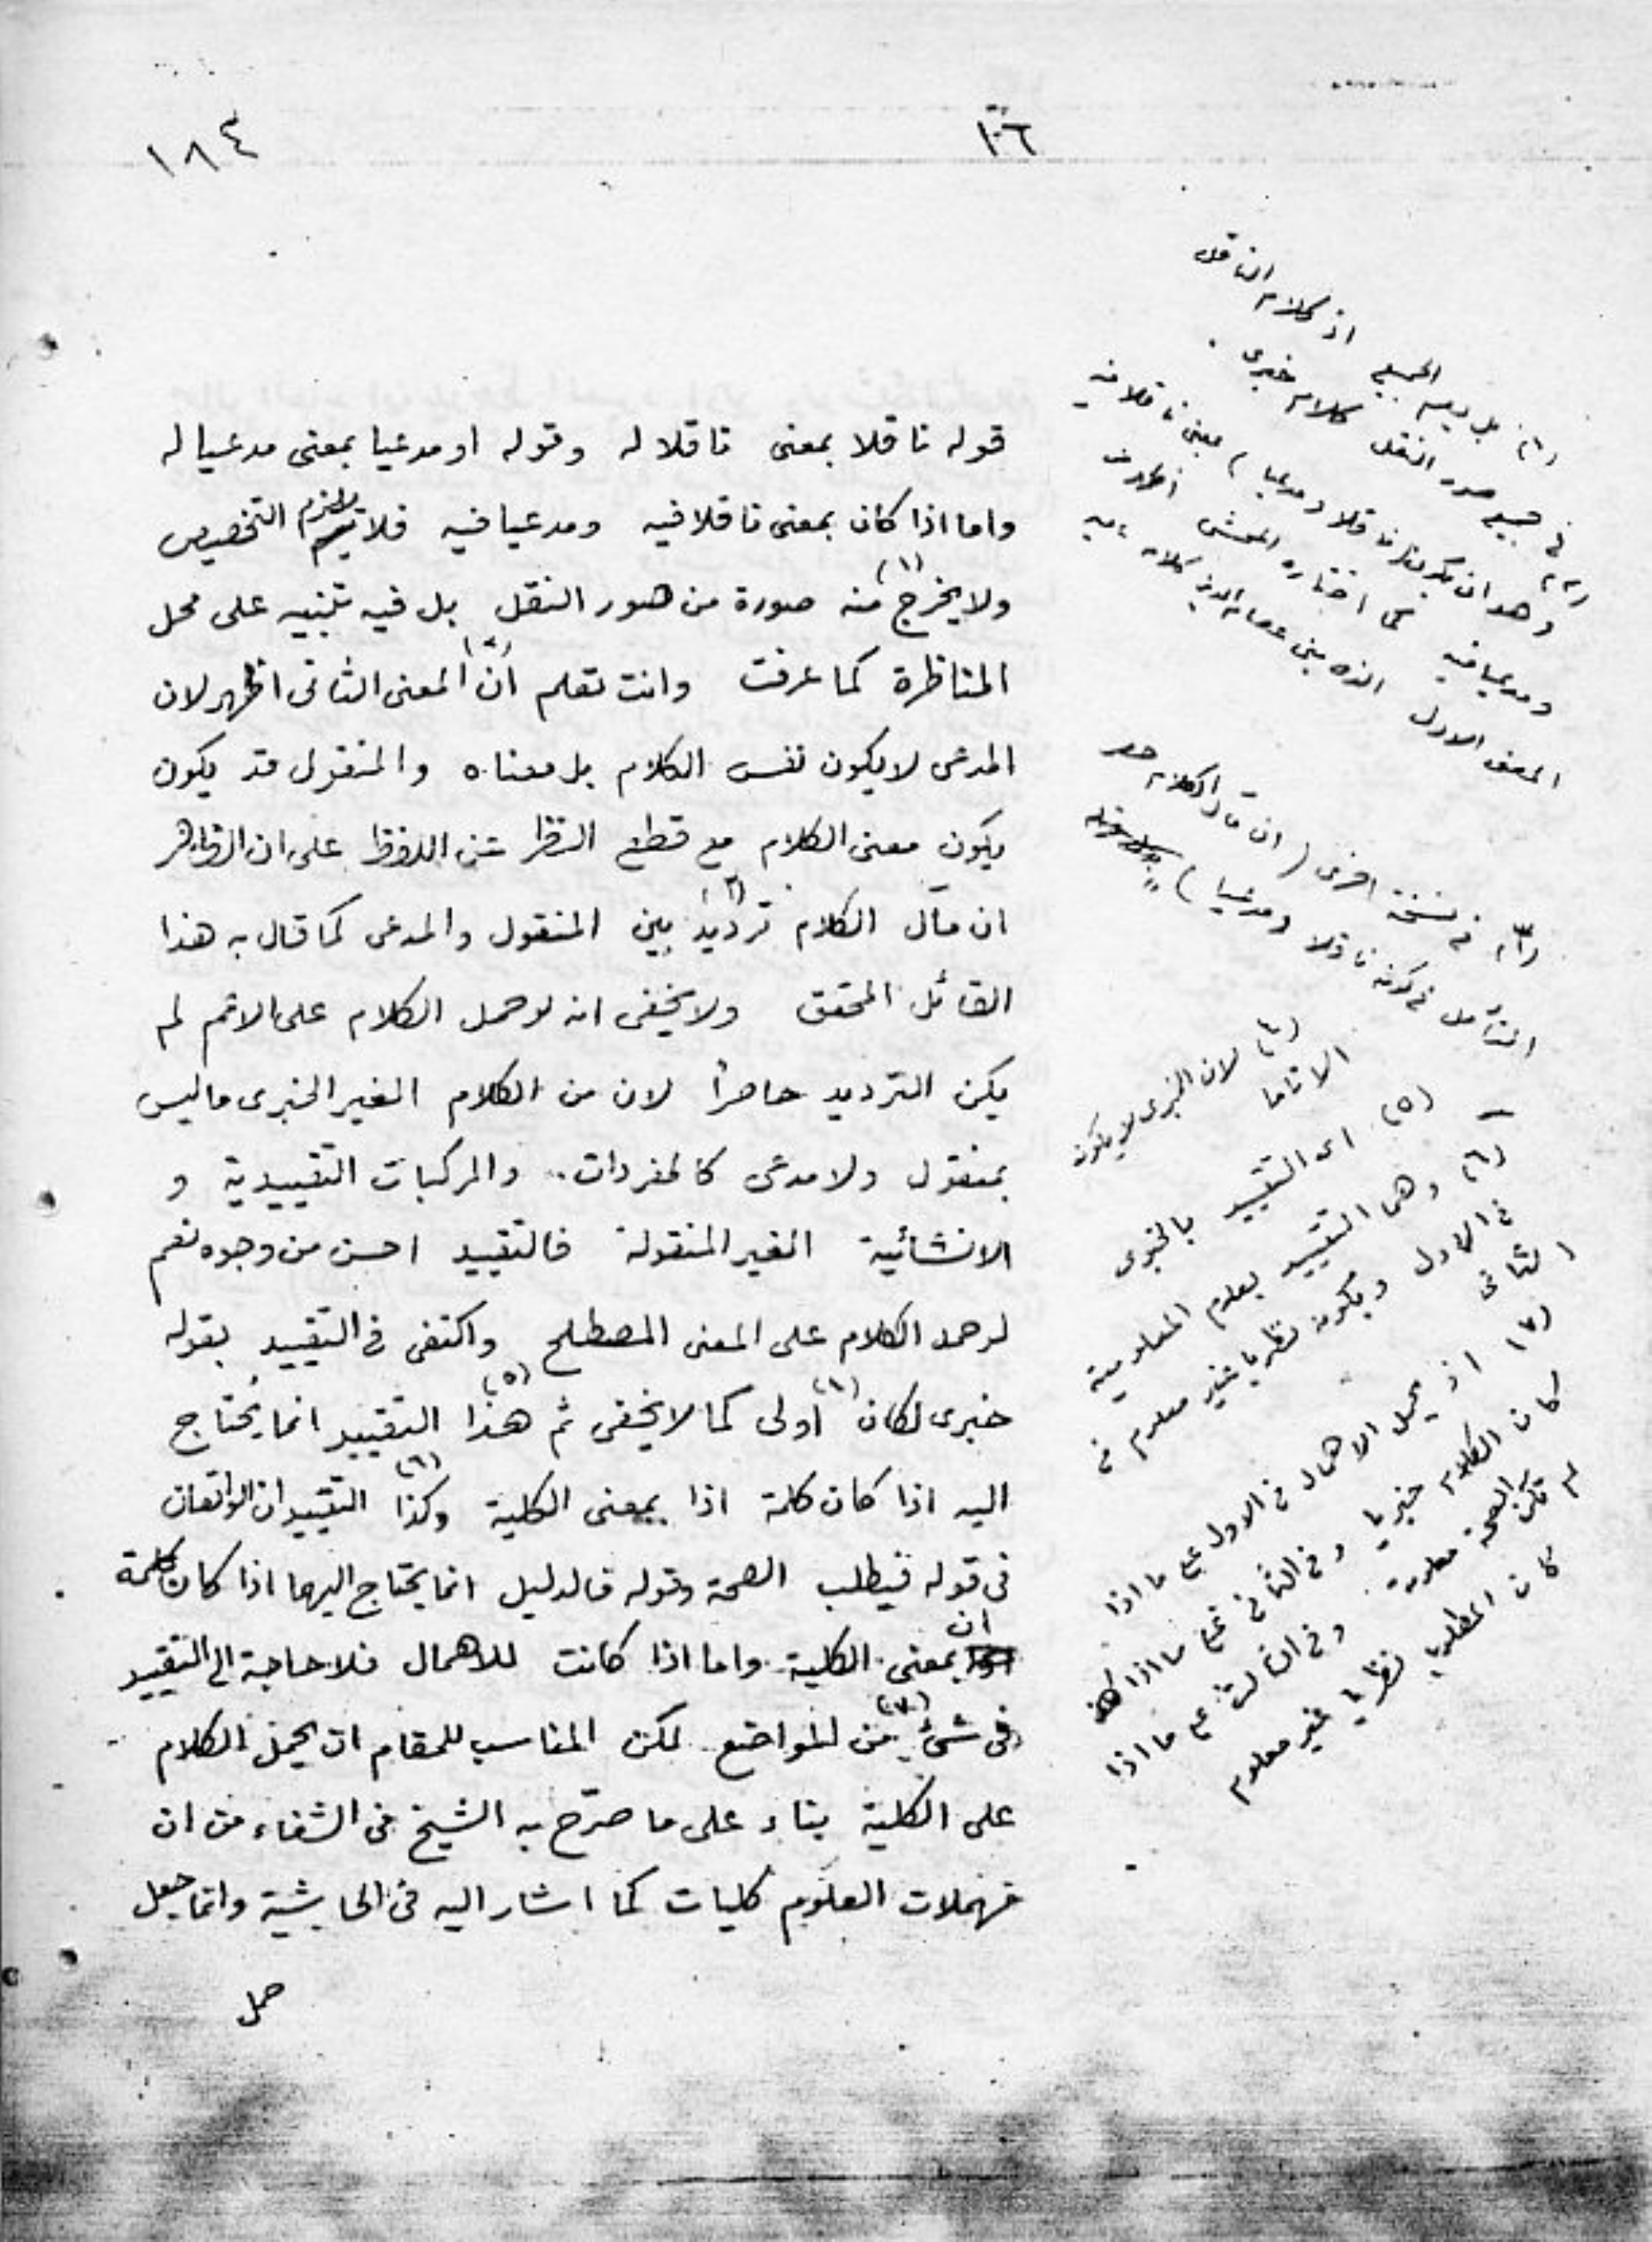 ١٨٤
١٠٦
قوله ناقلا بمعنى ناقلا له وقوله او مدعيا بمعنى مدعيا له
واما اذا كان بمعنى ناقلا فيه ومدعيا فيه فلا يلزم التخصيص
ولا يخرج (١) منه صورة من صور النقل بل فيه تنبيه على محل
المناظرة كما عرفت وانت تعلم ان (٢) المعنى الثانى اظهر لان
المدعى لا يكون نفس الكلام بل معناه والمنقول قد يكون
يكون معنى الكلام مع قطع النظر عن اللفظ على ان الظاهر
ان مآل الكلام ترديد (٣) بين المنقول والمدعى كما قال به هذا
القائل المحقق ولا يخفى انه لو حمل الكلام على الاعم لم
يكن الترديد حاصرا لان من الكلام الغير الخبرى ما ليس
بمنقول ولا مدعى كالمفردات والمركبات التقييدية و
الانشائية الغير المنقولة فالتقييد احسن من وجوه نعم
لو حمل الكلام على المعنى المصطلح واكتفى فى التقييد بقوله
خبرى لكان (٤) اولى كما لا يخفى ثم هذا (٥) التقييد انما يحتاج
اليه اذا كان كلمة اذا بمعنى الكلية وكذا (٦) التقييدان الواقعان
فى قوله فيطلب الصحة وقوله فالدليل انما يحتاج اليهما اذا كان كلمة
ان بمعنى الكلية واما اذا كانت للاهمال فلا حاجة الى التقييد
فى شئ (٧) من المواضع لكن المناسب للمقام ان يحمل الكلام
على الكلية بناء على ما صرّح به الشيخ فى الشفاء من ان
مهملات العلوم كليات كما اشار اليه فى الحاشية وانما جعل
حمل
(١) بل يعم الجميع اذ كلام الناقل
فى جميع صور النقل كلام خبرى
(٢) وهو ان يكون ناقلا ومدعيا) بمعنى ناقلا فيه
ومدعيا فيه كما اختاره المحشى
المعنى الاول الذى بنى عصام الدين كلامه عليه
(٣) فى نسخة اخرى (ان مآل الكلام هو
التأمل فى كونه ناقلا ومدعيا)
(٤) لان الخبرى لا يكون
الا تاما
(٥) اى التقييد بالخبرى
(٦) وهى التقييد بعدم المعلومية
فى الاول ويكونه نظريا غير معلوم فى
الثانى
(٧) اذ يحمل الاهمال فى الاول على ما اذا
كان الكلام خبريا وفى الثانى على ما اذا
لم تكن الصحة معلومة وفى الثالث على ما اذا
كان المطلوب نظريا غير معلوم